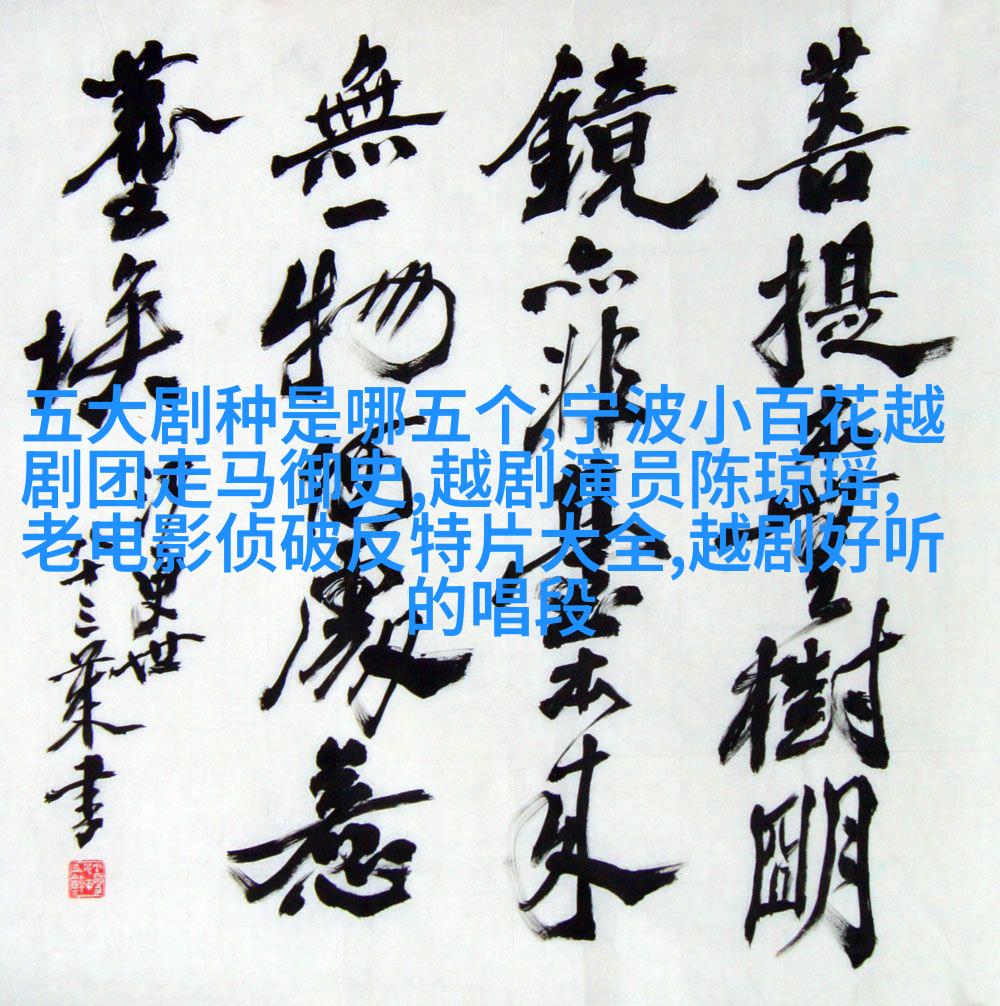 菩提樹朙
鏡亦非臺本来
無一物何處惹
塵埃
十三葉書
五大剧种是哪五个,宁波小百花越
剧团走马御史,越剧演员陈琼瑶,
老电影侦破反特片大全,越剧好听
的唱段